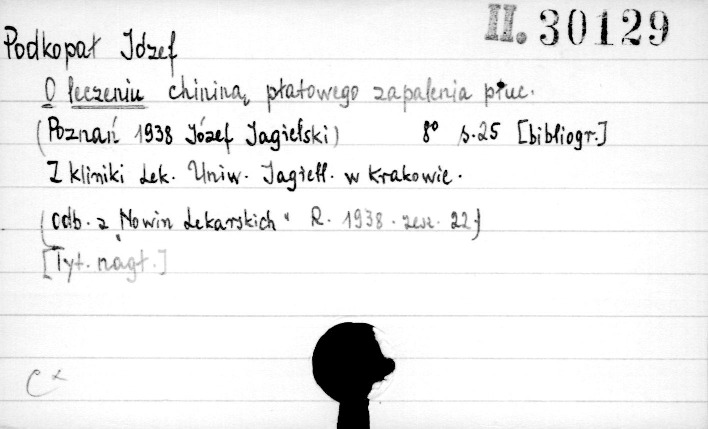 II. 30129
Podkopał Józef
O leczeniu chininą płatowego zapalenia płuc.
(Poznań 1938 Józef Jagielski) 8° s. 25 [bibliogr.]
Z kliniki Lek. Uniw. Jagiell. w Krakowie.
(odb. z „Nowin Lekarskich" R. 1938. zesz. 22)
[Tyt. nagł.]